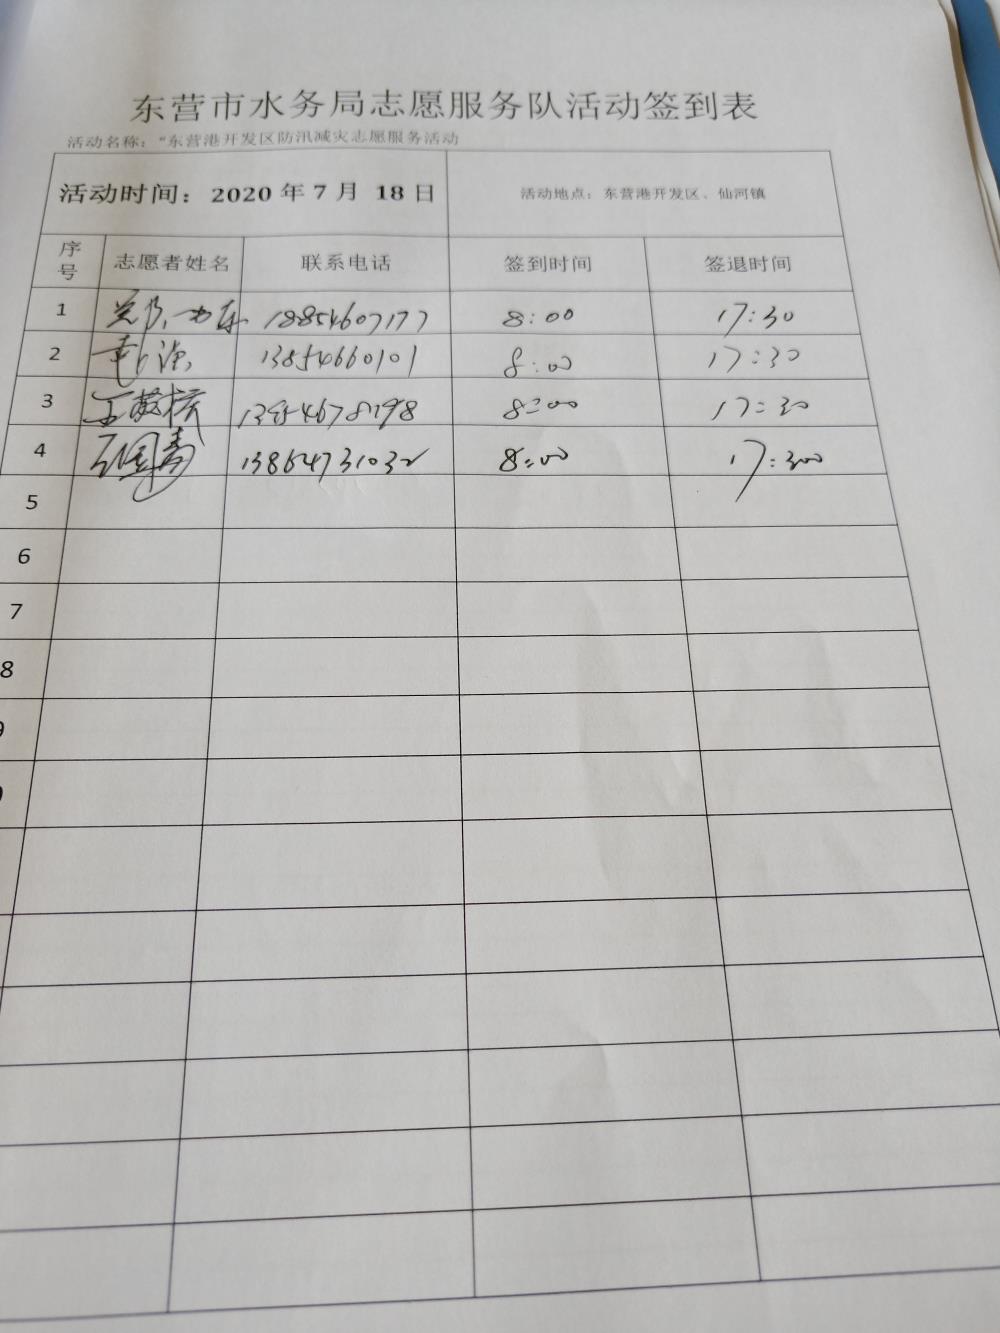 东营市水务局志愿服务队活动签到表
活动名称：“东营港开发区防汛减灾志愿服务活动
活动时间：2020年7月18日 活动地点：东营港开发区、仙河镇
序号 志愿者姓名 联系电话 签到时间 签退时间
1 18854607177 8:00 17:30
2 13854660101 8:00 17:30
3 8:00 17:30
4 13864731032 8:00 17:300
5
6
7
8